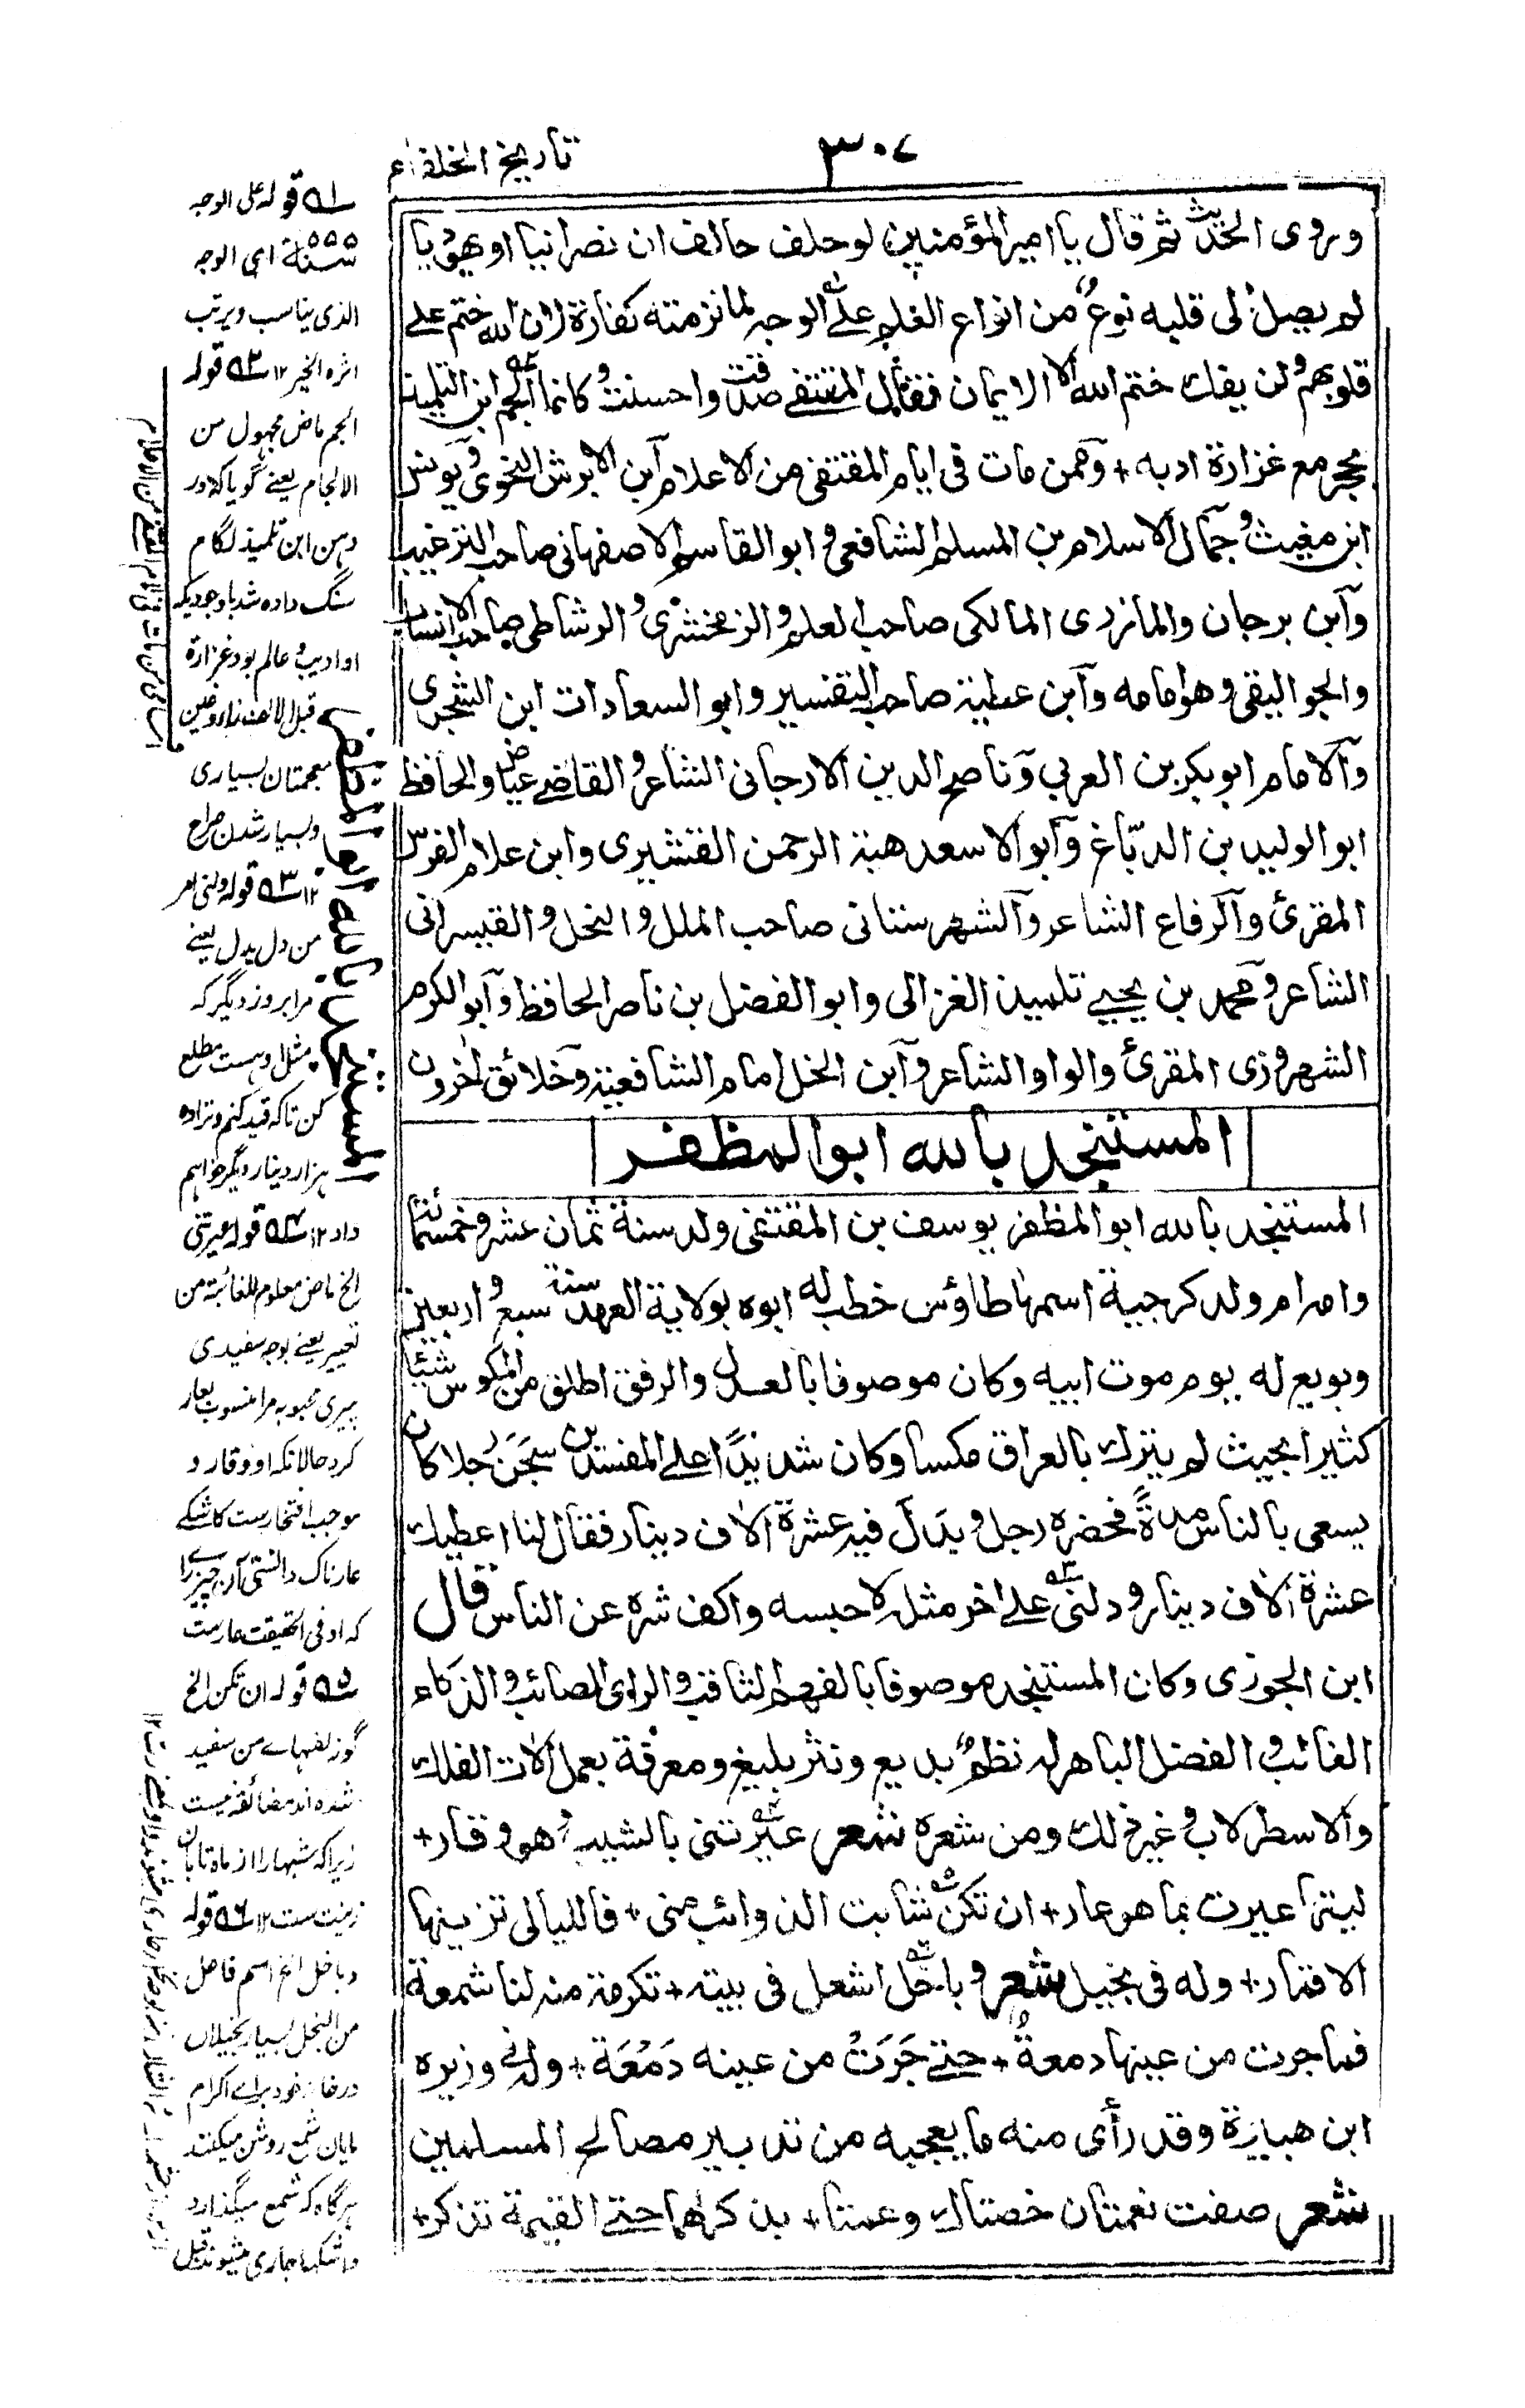 تاريخ الخلفاء
٣٠٧
وروى الحديث ثم قال يا امير المؤمنين لو حلف حالف ان نصرانيا او يهوديا
لم يصل الى قلبه نوع من انواع العلم على الوجه لما لزمته كفارة لان الله ختم على
قلوبهم ولن يفك ختم الله الا الايمان فقال المقتفى صدقت واحسنت وكانما الجم ابن التلميذ
بحجر مع غزارة ادبه + وممن مات فى ايام المقتفى من الاعلام ابن الابرش النحوى ويونس
ابن مغيث وجمال الاسلام بن المسلم الشافعى وابو القاسم الاصفهانى صاحب الترغيب
وابن برجان والمازرى المالكى صاحب المعلم والزمخشرى والرشاطى صاحب الانساب
والجواليقى وهو امامه وابن عطية صاحب التفسير وابو السعادات ابن الشجرى
والامام ابو بكر بن العربي وناصح الدين الارجانى الشاعر والقاضى عياض والحافظ
ابو الوليد بن الدبّاغ وابو الاسعد هبة الرحمن القشيرى وابن علام الفرس
المقرئ والرفاع الشاعر والشهرستانى صاحب الملل والنحل والقيسرانى
الشاعر ومحمد بن يحيى تلميذ الغزالى وابو الفضل بن ناصر الحافظ وابو الكرم
الشهرزورى المقرئ والواوا الشاعر وابن الخل امام الشافعية وخلائق اخرون
المستنجد بالله ابو المظفر
المستنجد بالله ابو المظفر يوسف بن المقتفى ولد سنة ثمان عشر وخمسمائة
وامه ام ولد كرجية اسمها طاؤس خطب له ابوه بولاية العهد سنة سبع واربعين
وبويع له يوم موت ابيه وكان موصوفا بالعدل والرفق اطلق من المكوس شيئا
كثيرا بحيث لم يترك بالعراق مكسا وكان شديدًا على المفسدين سَجَنَ رجلا كان
يسعى بالناس مدةً فحضره رجل وبذل فيه عشرة الاف دينار فقال لنا اعطيك
عشرة الاف دينار ودلنى على اخر مثله لاحبسه واكف شره عن الناس قال
ابن الجوزى وكان المستنجد موصوفا بالفهم الثاقب والراى الصائب والذكاء
الغالب والفضل الباهر له نظم بديع ونثر بليغ ومعرفة بعمل الات الفلك
والاسطرلاب وغير ذلك ومن شعره شعر عيّرتنى بالشيب وهو وقار +
ليتها عيرت بما هو عار + ان تكن شابت الذوائب منى + فالليالى تزينها
الاقمار + وله فى بخيل شعر وباخل اشعل فى بيته + تكرمة منه لنا شمعة
فما جرت من عينها دمعة + حتى جَرَتْ من عينه دَمْعَة + وله فى وزيره
ابن هبيرة وقد رأى منه ما يعجبه من تدبير مصالح المسلمين
شعر صفت نعمتان خصتاك وعمتا + بذكرهما حتى القيمة تذكر +
۱ قوله على الوجه
اى الوجه
الذى يناسب ويرتب
اثره الخير ۱۲ ۲ قوله
الجم ماض مجهول من
الالجام يعنى گويا كه در
دهن ابن تلميذ لگام
سنگ داده شد باوجوديكه
او اديب و عالم بود غزارة
معجمتان بسيارى
وبسيار شدن
۱۲ ۳ قوله دلنى امر
من دل يدل يعنى
مرا بروز ديگر كه
مثل اوست مطلع
كن تا كه قيد كنم و ترا ده
هزار دينار ديگر خواهم
داد ۱۲ ۴ قوله عيرتنى
الخ ماض معلوم للغائبة من
تعيير يعنى بوجه سفيدى
پيرى محبوبه مرا منسوب بعار
كرد حالانكه او وقار و
موجب افتخارست كاشكى
عارناك دانستى آن چيز را
كه او فى الحقيقت عارست
۵ قوله ان تكن الخ
گو زلفهاے من سفيد
شده اند مضائقه نيست
زيراكه شبها را از ماه تابان
زينت ست ۱۲ ۶ قوله
وباخل الخ اسم فاعل
من البخل بسيار بخيلان
در خانه خود براے اكرام
مايان شمع روشن ميكنند
هرگاه كه شمع ميگدازد
واشكها جارى ميشوند قبل
المستنجد بالله ابو المظفر